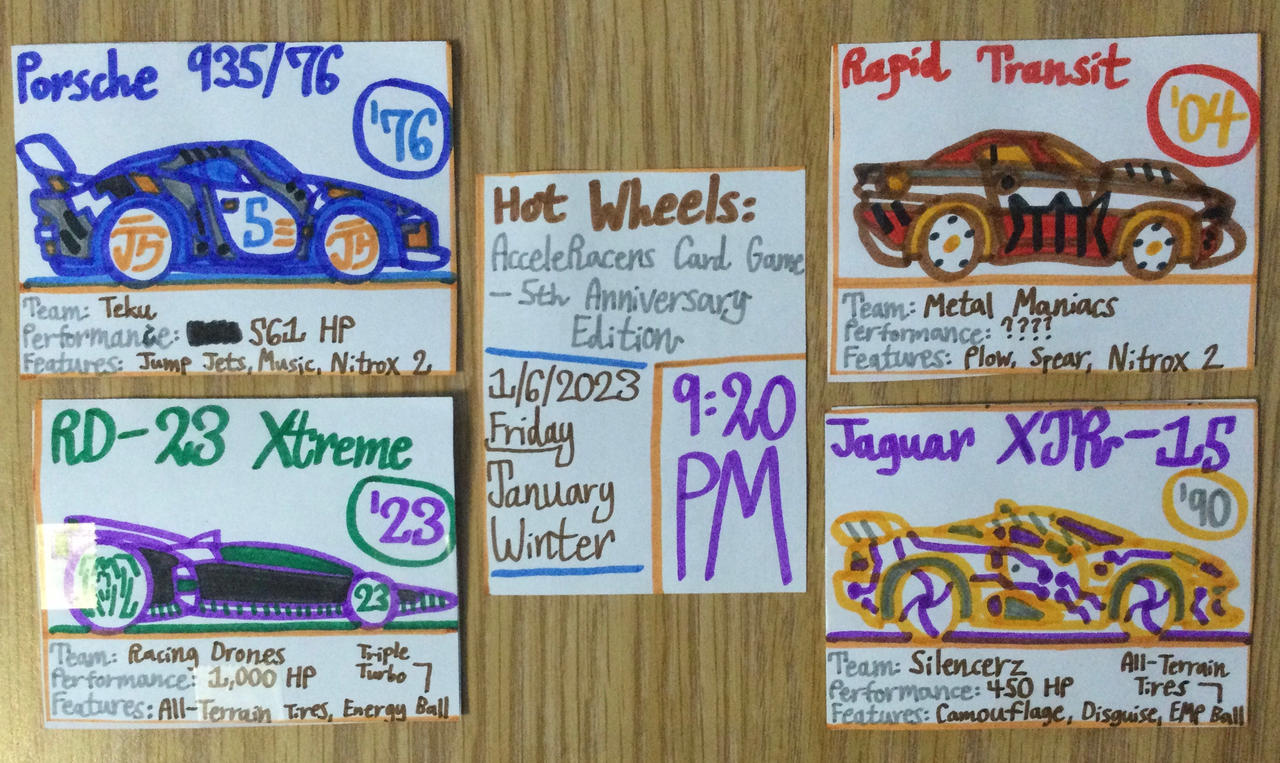 Porsche 935/76
'76
J5
5
J5
Team: Teku
Performance: 561 HP
Features: Jump Jets, Music, Nitrox 2
Rapid Transit
'04
Team: Metal Maniacs
Performance: ????
Features: Plow, Spear, Nitrox 2
Hot Wheels:
AcceleRacers Card Game
- 5th Anniversary
Edition
1/6/2023
Friday
January
Winter
9:20
PM
RD-23 Xtreme
'23
23
Team: Racing Drones
Performance: 1,000 HP
Features: All-Terrain Tires, Energy Ball
Triple
Turbo
Jaguar XJR-15
'90
Team: Silencerz
Performance: 450 HP
Features: Camouflage, Disguise, EMP Ball
All-Terrain
Tires